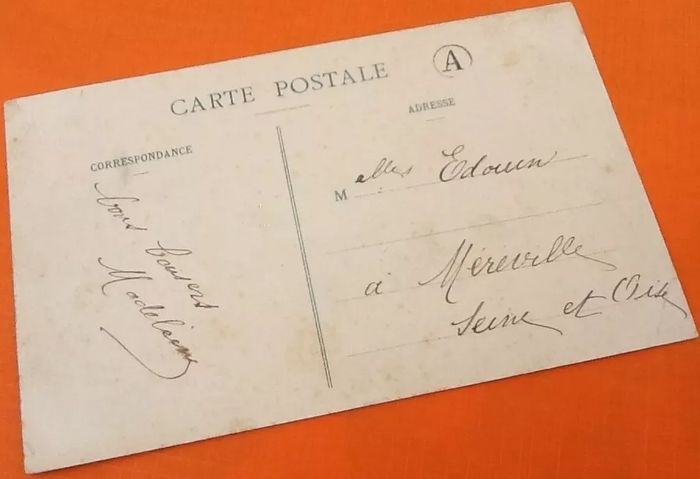 CARTE POSTALE
A
CORRESPONDANCE
bons baisers
Madeleine
ADRESSE
Melles Edouin
à Méréville
Seine et Oise